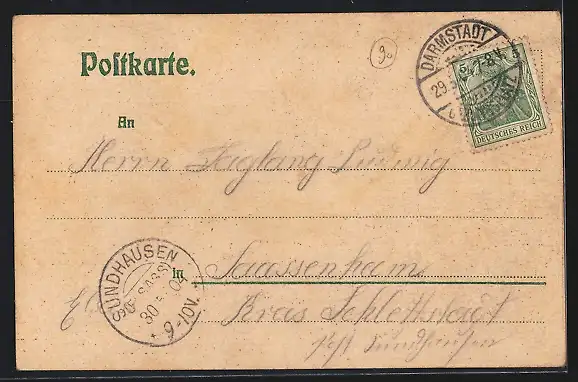 Postkarte.
DARMSTADT
29
5
DEUTSCHES REICH
An
Herrn Taglang Ludwig
SUNDHAUSEN
(ELSASS)
30 04
9-10V.
In Saassenheim
Kreis Schlettstadt
Post Sundhausen